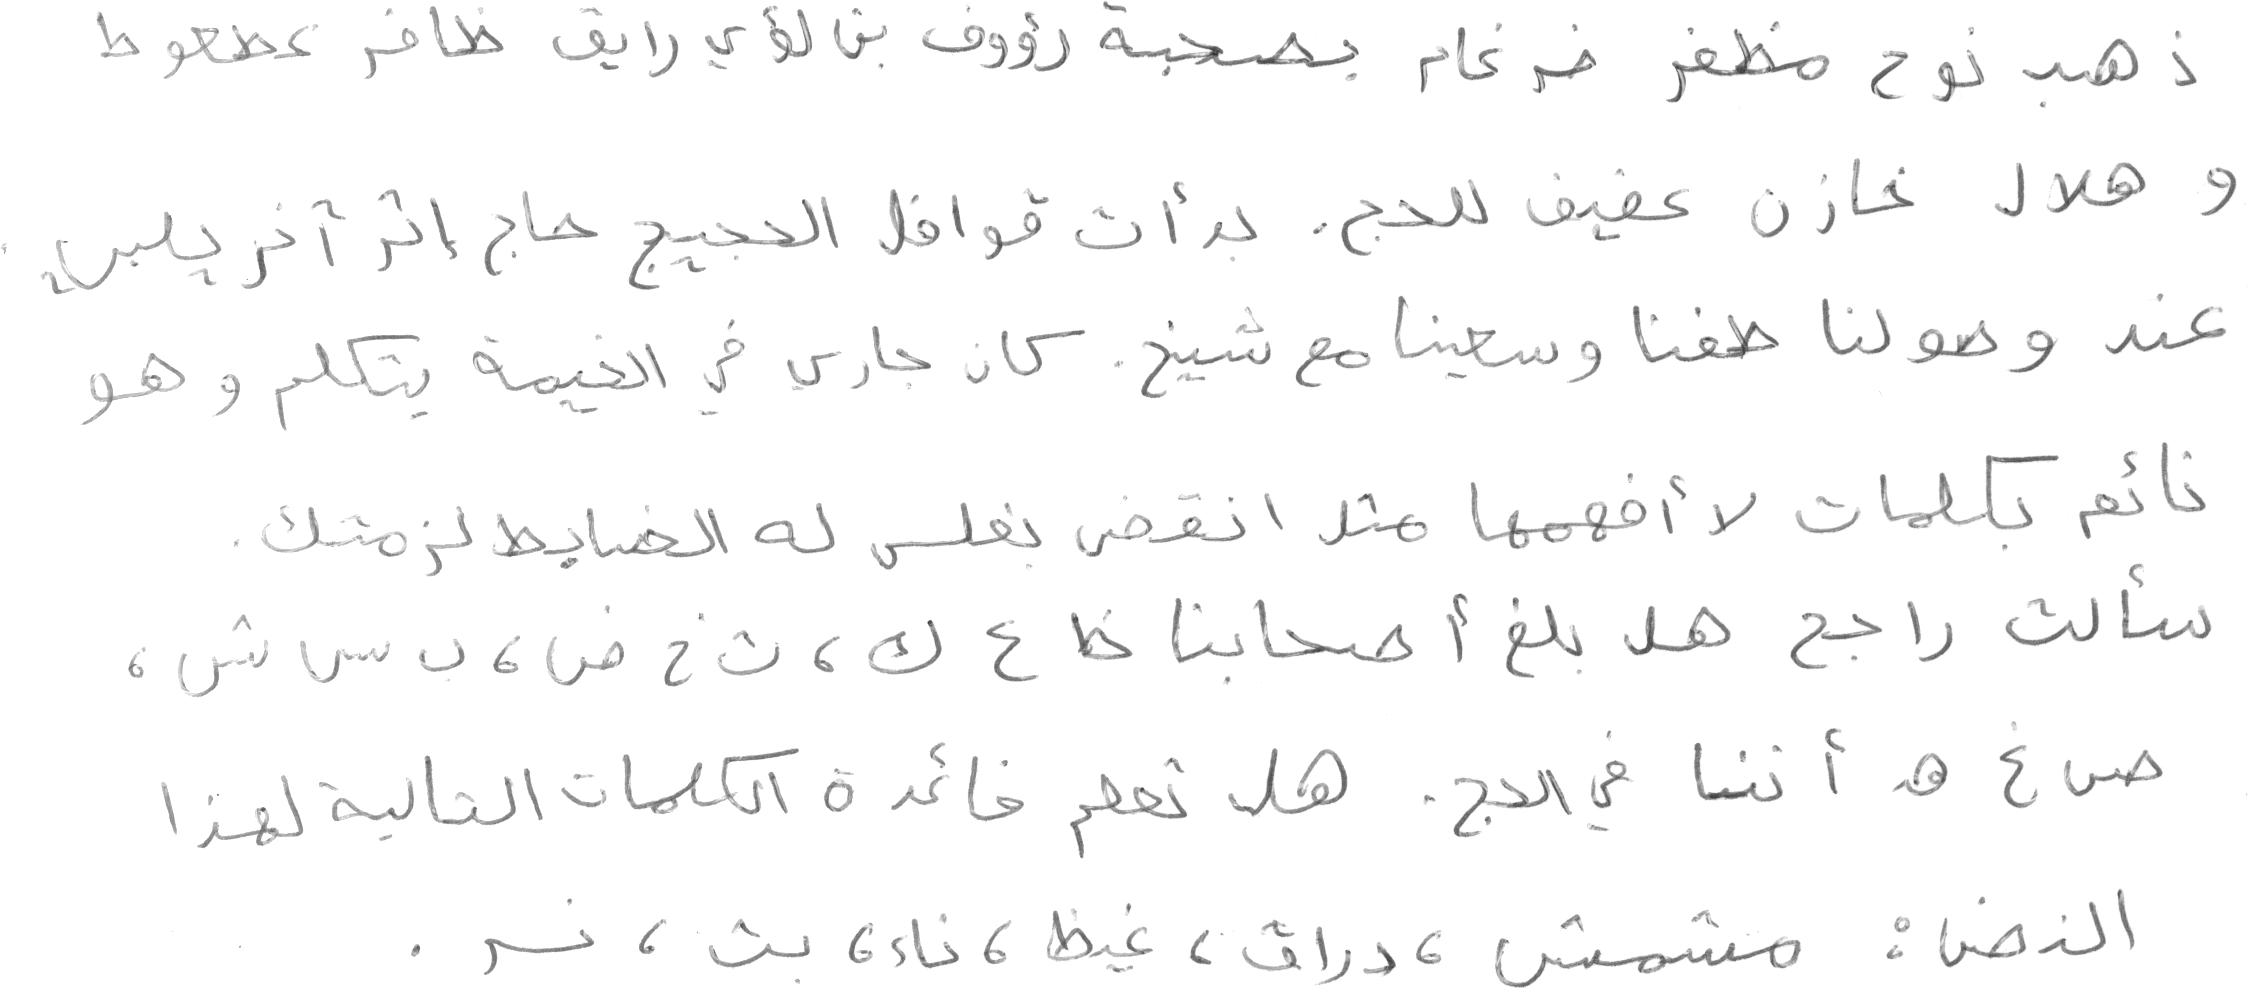 ذهب نوح مظفر ضرغام بصحبة رؤوف بن لؤي رايق ظافر عطعوط
و هلال خازن عفيف للحج. بدأت قوافل الحجيج حاج إثر آخر يلبي.
عند وصولنا طفنا وسعينا مع شيخ. كان جاري في الخيمة يتكلم وهو
نائم بكلمات لا أفهمها مثل انقض بغلس له الضابط لزمتك.
سألت راجح هل بلغ أصحابنا ظ ع ك، ث خ ض، ب س ش،
ص غ هـ أننا في الحج. هل تعلم فائدة الكلمات التالية لهذا
النص: مشمش، دراق، غيظ، ناء، بث، نسر.